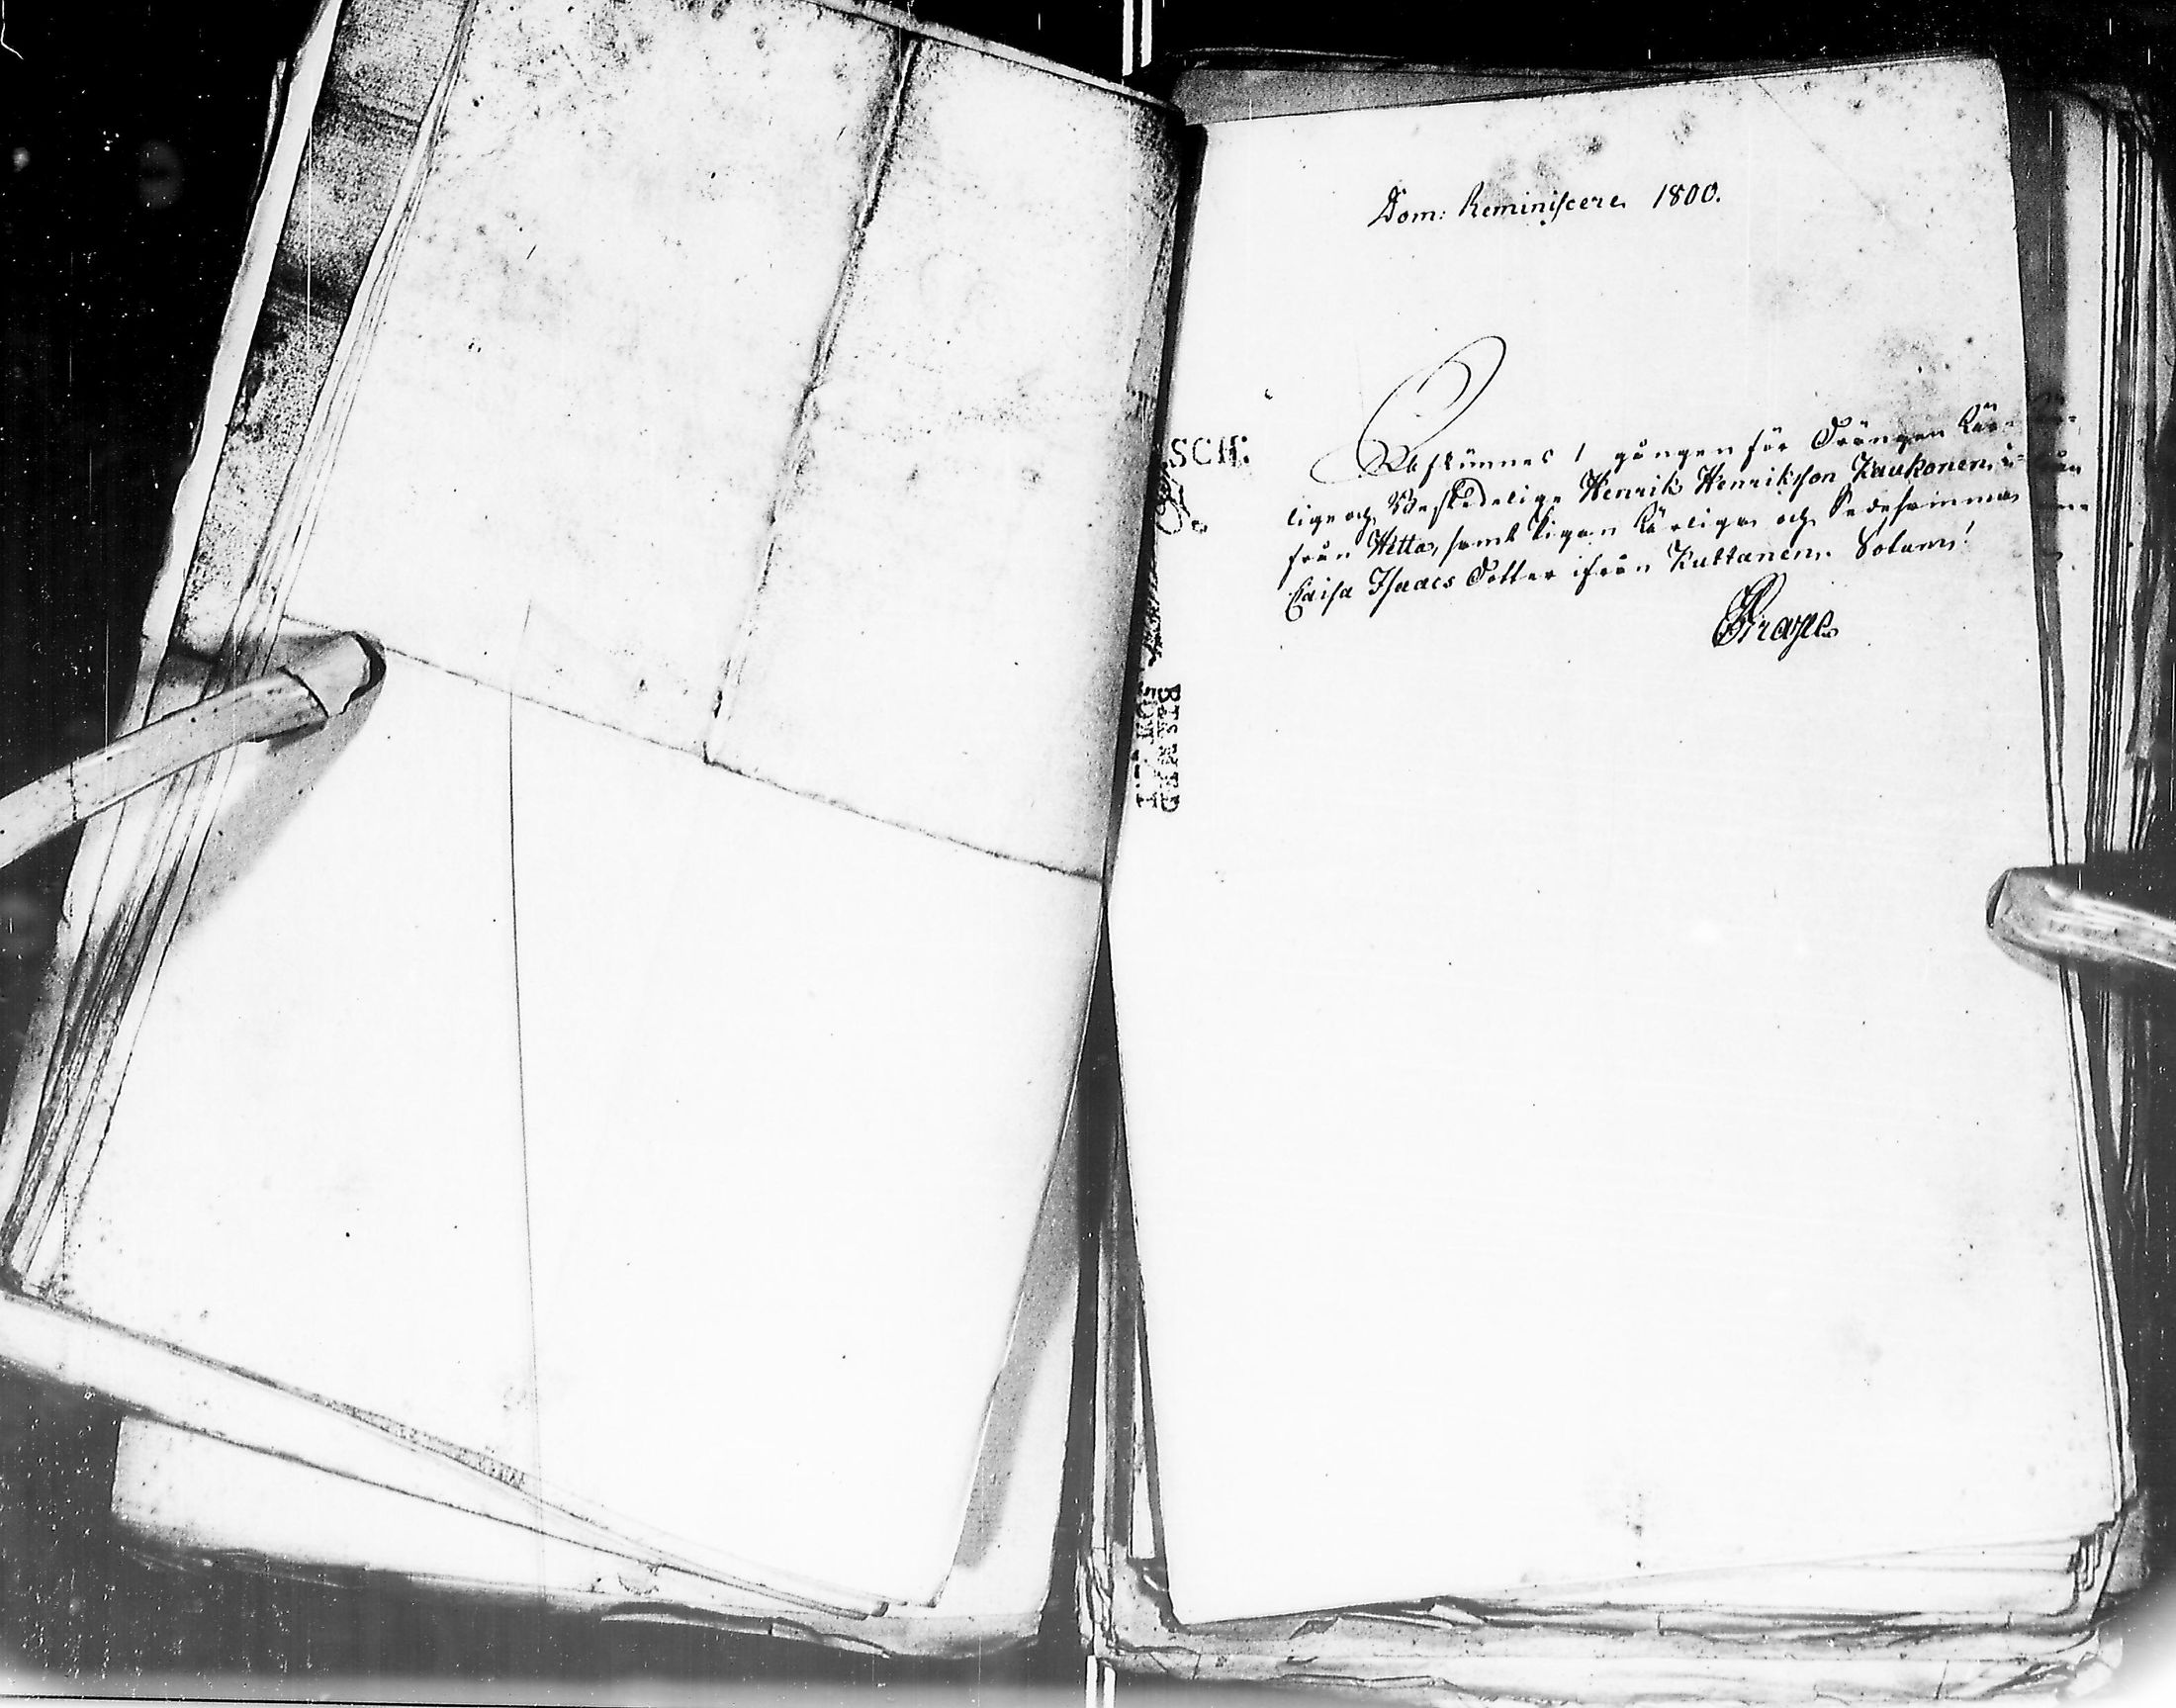 Dom: Reminiscere 1800.
Afkunnes 1 gången för Drängen Ärlige och Beskedelige Henrik Henrikson Kaukonen i
från Hetta, samt Pigan Ärliga och Sedesamma
Caisa Isaacs Dotter ifrån Kuttanen. Solum!
SCH: